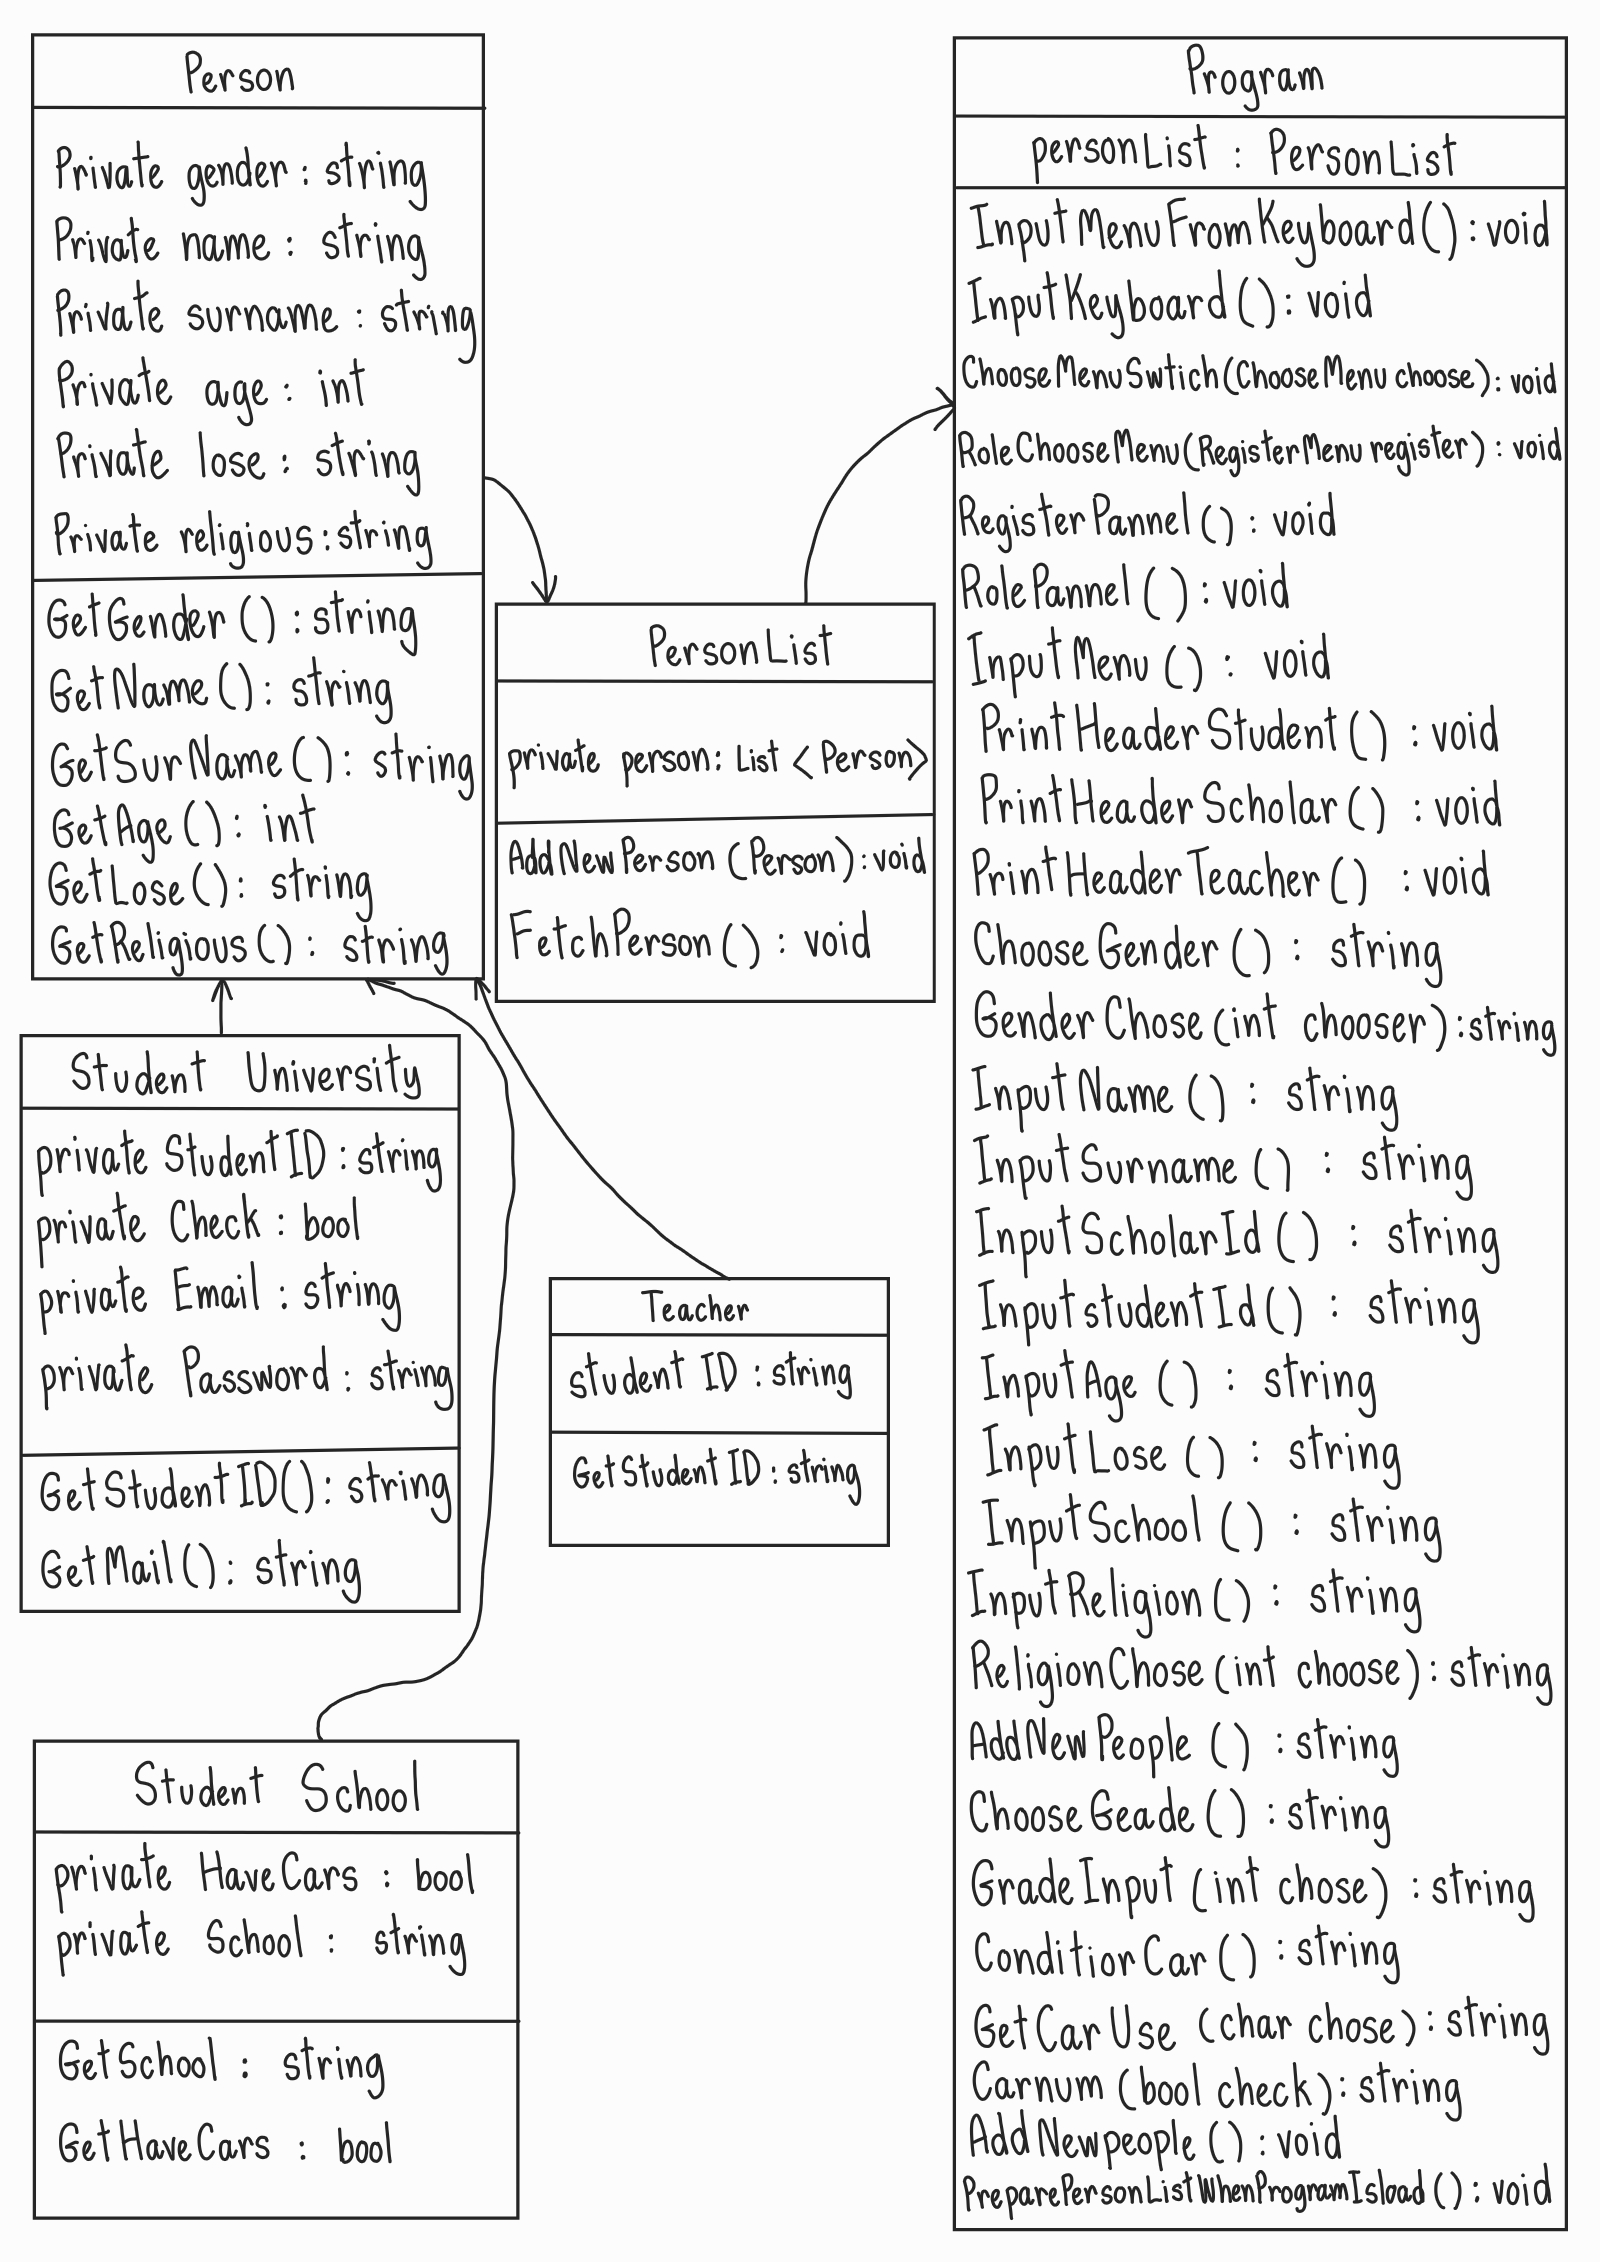 Person
Private gender : string
Private name : string
Private surname : string
Private age : int
Private lose : string
Private religious : string
GetGender () : string
GetName () : string
GetSurName () : string
GetAge () : int
GetLose () : string
GetReligious () : string
PersonList
private person : List <Person>
AddNewPerson (Person) : void
FetchPerson () : void
Student University
private StudentID : string
private Check : bool
private Email : string
private Password : string
GetStudentID() : string
GetMail() : string
Teacher
student ID : string
GetStudentID : string
Student School
private HaveCars : bool
private School : string
GetSchool : string
GetHaveCars : bool
Program
personList : PersonList
InputMenuFromKeyboard() : void
InputKeyboard () : void
ChooseMenuSwtich(ChooseMenu choose) : void
RoleChooseMenu(RegisterMenu register) : void
RegisterPannel () : void
RolePannel () : void
InputMenu () : void
PrintHeaderStudent () : void
PrintHeaderScholar () : void
PrintHeaderTeacher () : void
ChooseGender () : string
GenderChose (int chooser) : string
InputName () : string
InputSurname () : string
InputScholarId () : string
InputstudentId () : string
InputAge () : string
InputLose () : string
InputSchool () : string
InputReligion () : string
ReligionChose (int choose) : string
AddNewPeople () : string
ChooseGeade () : string
GradeInput (int chose) : string
ConditionCar () : string
GetCarUse (char chose) : string
Carnum (bool check) : string
AddNewpeople () : void
PreparePersonListWhenProgramIsload () : void